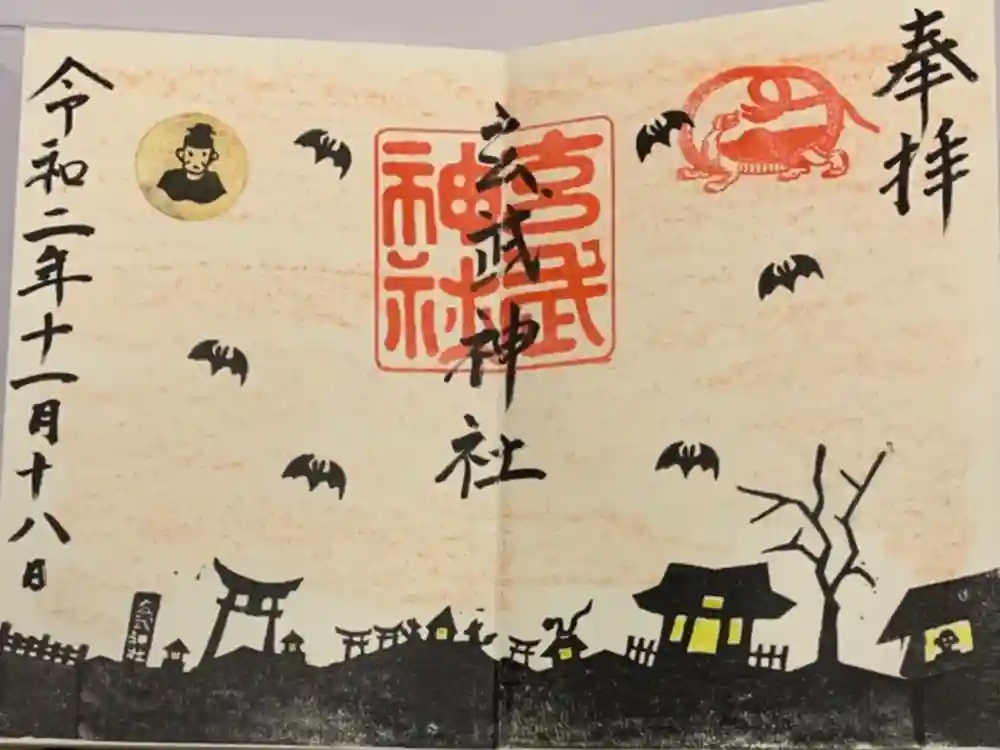 奉拝
玄武神社
玄武神社
令和二年十一月十八日